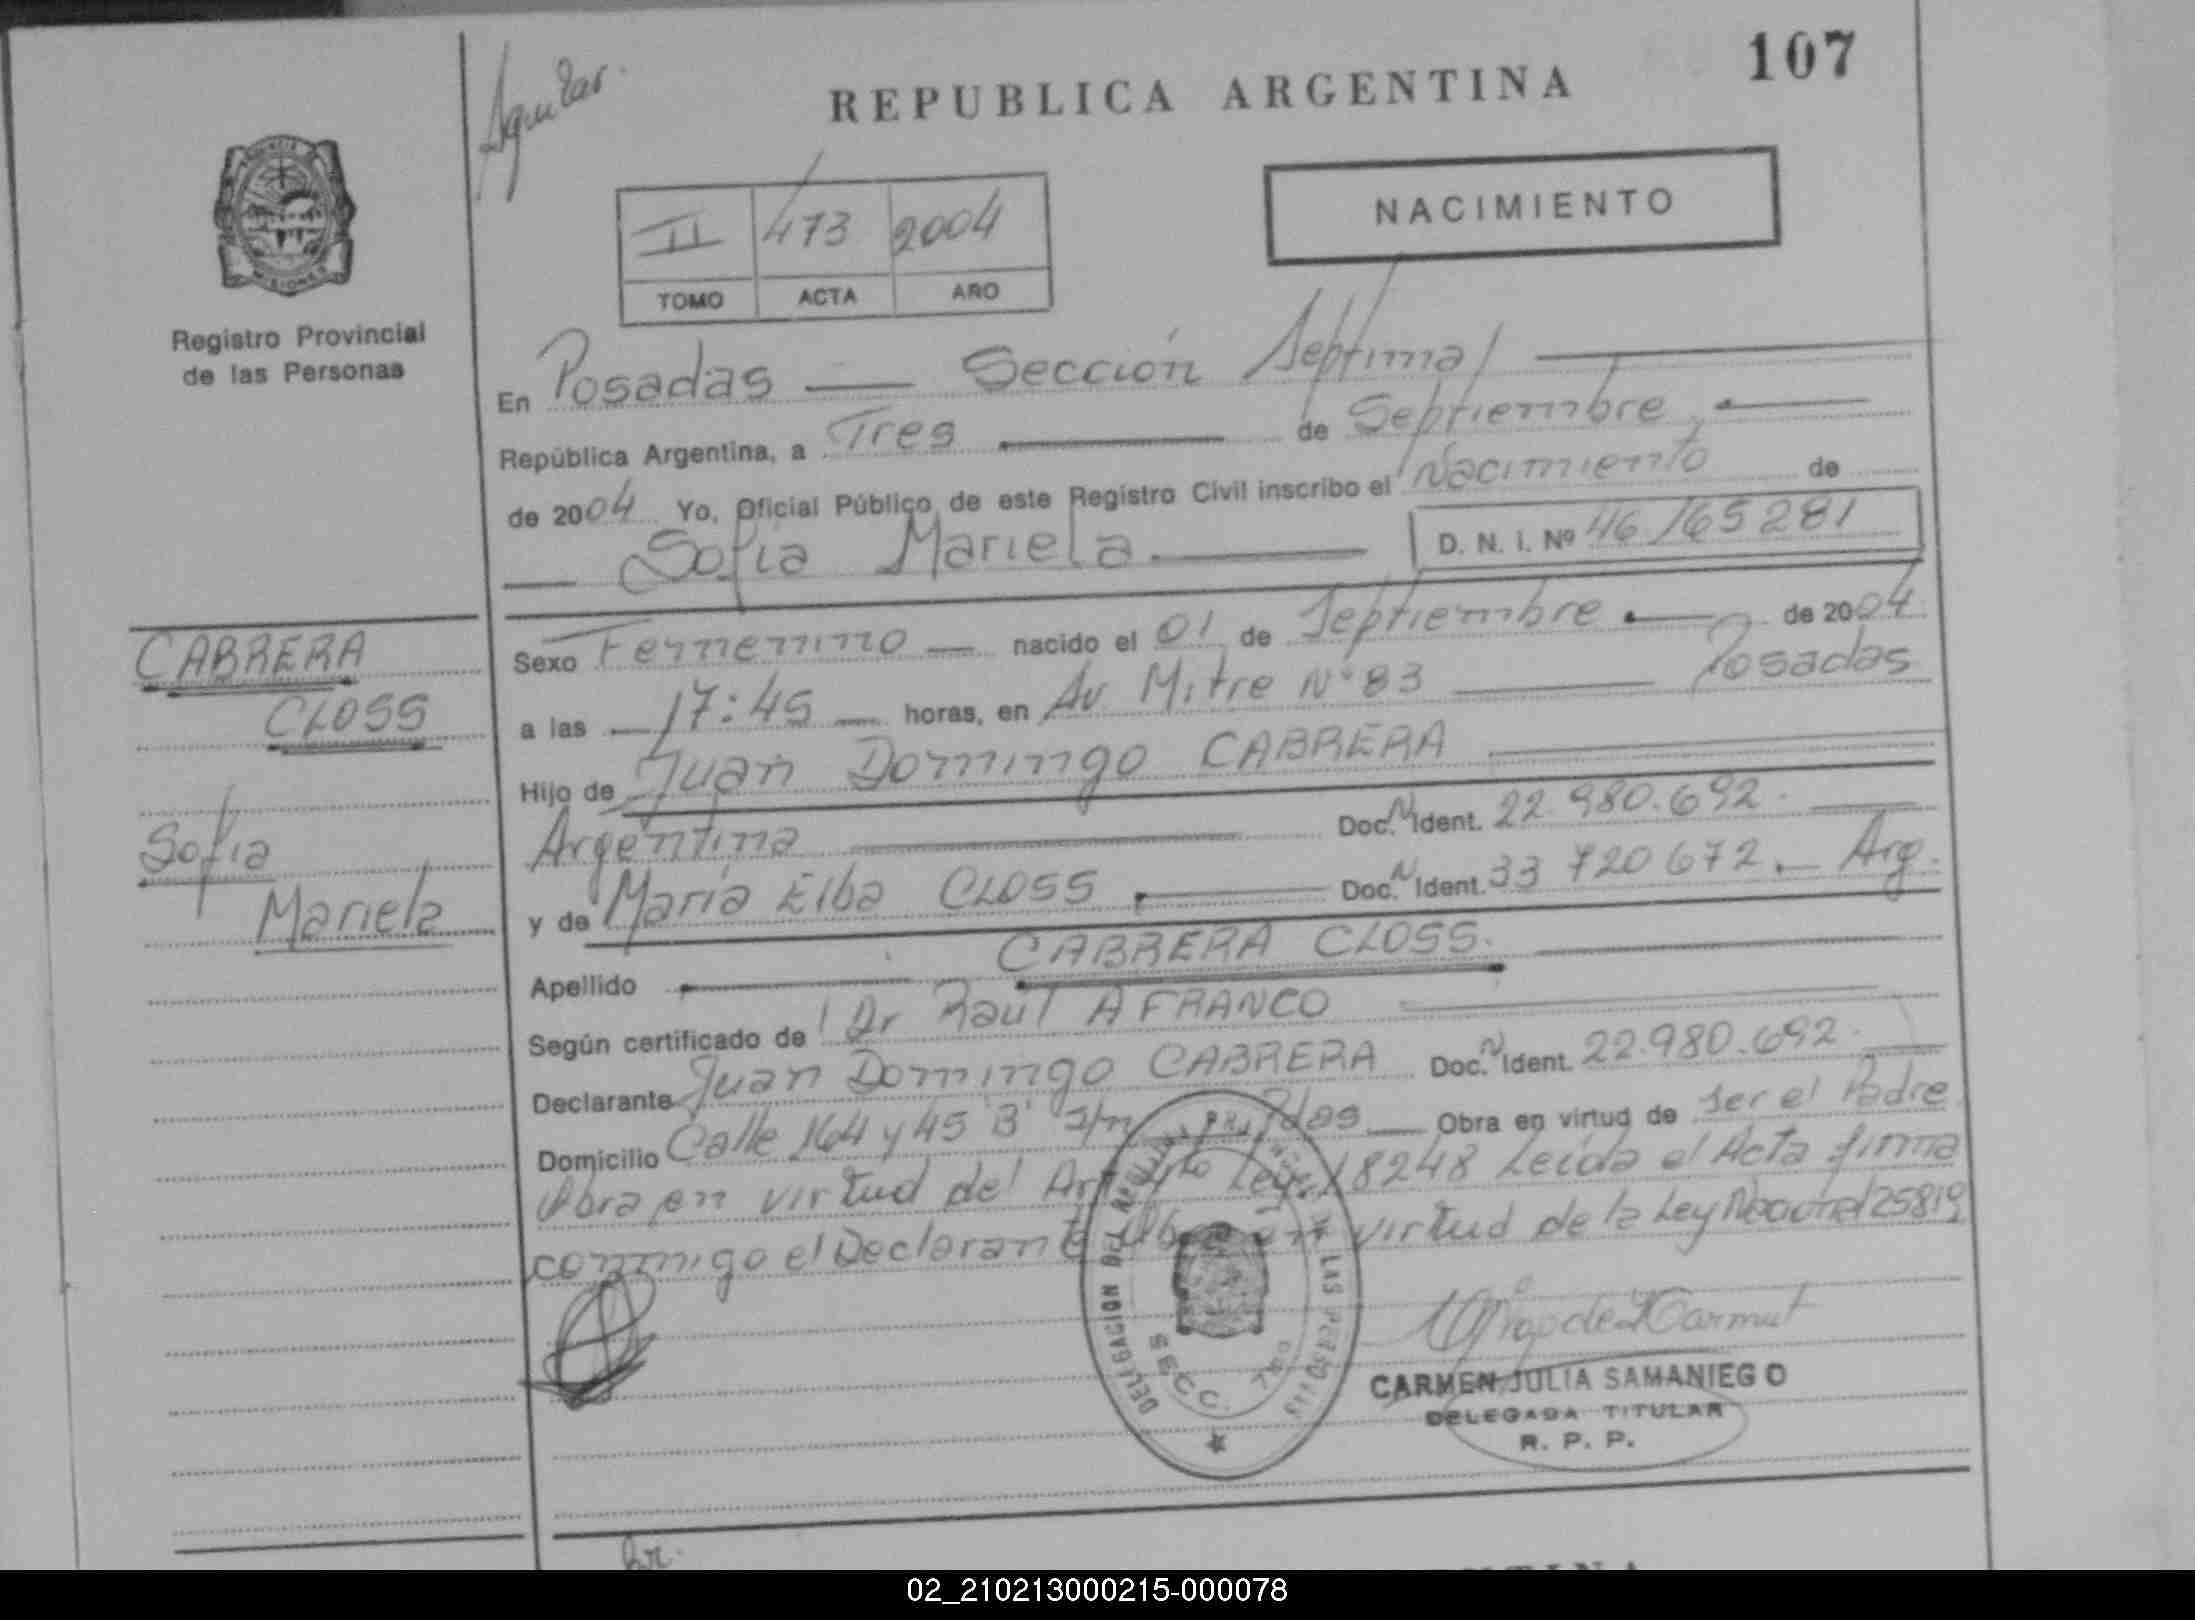 Aguilar.
REPUBLICA ARGENTINA
107
PROVINCIA
MISIONES
Registro Provincial
de las Personas
II 473 2004
TOMO ACTA AÑO
NACIMIENTO
En Posadas — Sección Séptima
República Argentina, a Tres — de Septiembre,
de 2004 Yo, Oficial Público de este Registro Civil inscribo el Nacimiento de
Sofia Mariela — D. N. I. Nº 46165281
CABRERA
CLOSS
Sofia
Mariela
Sexo Femenino — nacido el 01 de Septiembre — de 2004
a las — 17:45 — horas, en Av Mitre Nº 83 — Posadas
Hijo de Juan Domingo CABRERA
Argentina — Doc. N Ident. 22.980.692.
y de María Elba CLOSS — Doc. N Ident. 33 720 672. — Arg.
Apellido — CABRERA CLOSS.
Según certificado de Dr Raúl A FRANCO
Declarante Juan Domingo CABRERA Doc. N Ident. 22.980.692.
Domicilio Calle 164 y 45 "B" s/n Pdas — Obra en virtud de Ser el Padre
Obra en virtud del Art 4to Ley 18248 Leída el Acta firma
conmigo el Declarante Obra en virtud de la Ley 25819
DELEGACION DEL REGISTRO PROVINCIAL DE LAS PERSONAS
SECC. 7MA
CARMEN JULIA SAMANIEGO
DELEGADA TITULAR
R. P. P.
02_210213000215-000078